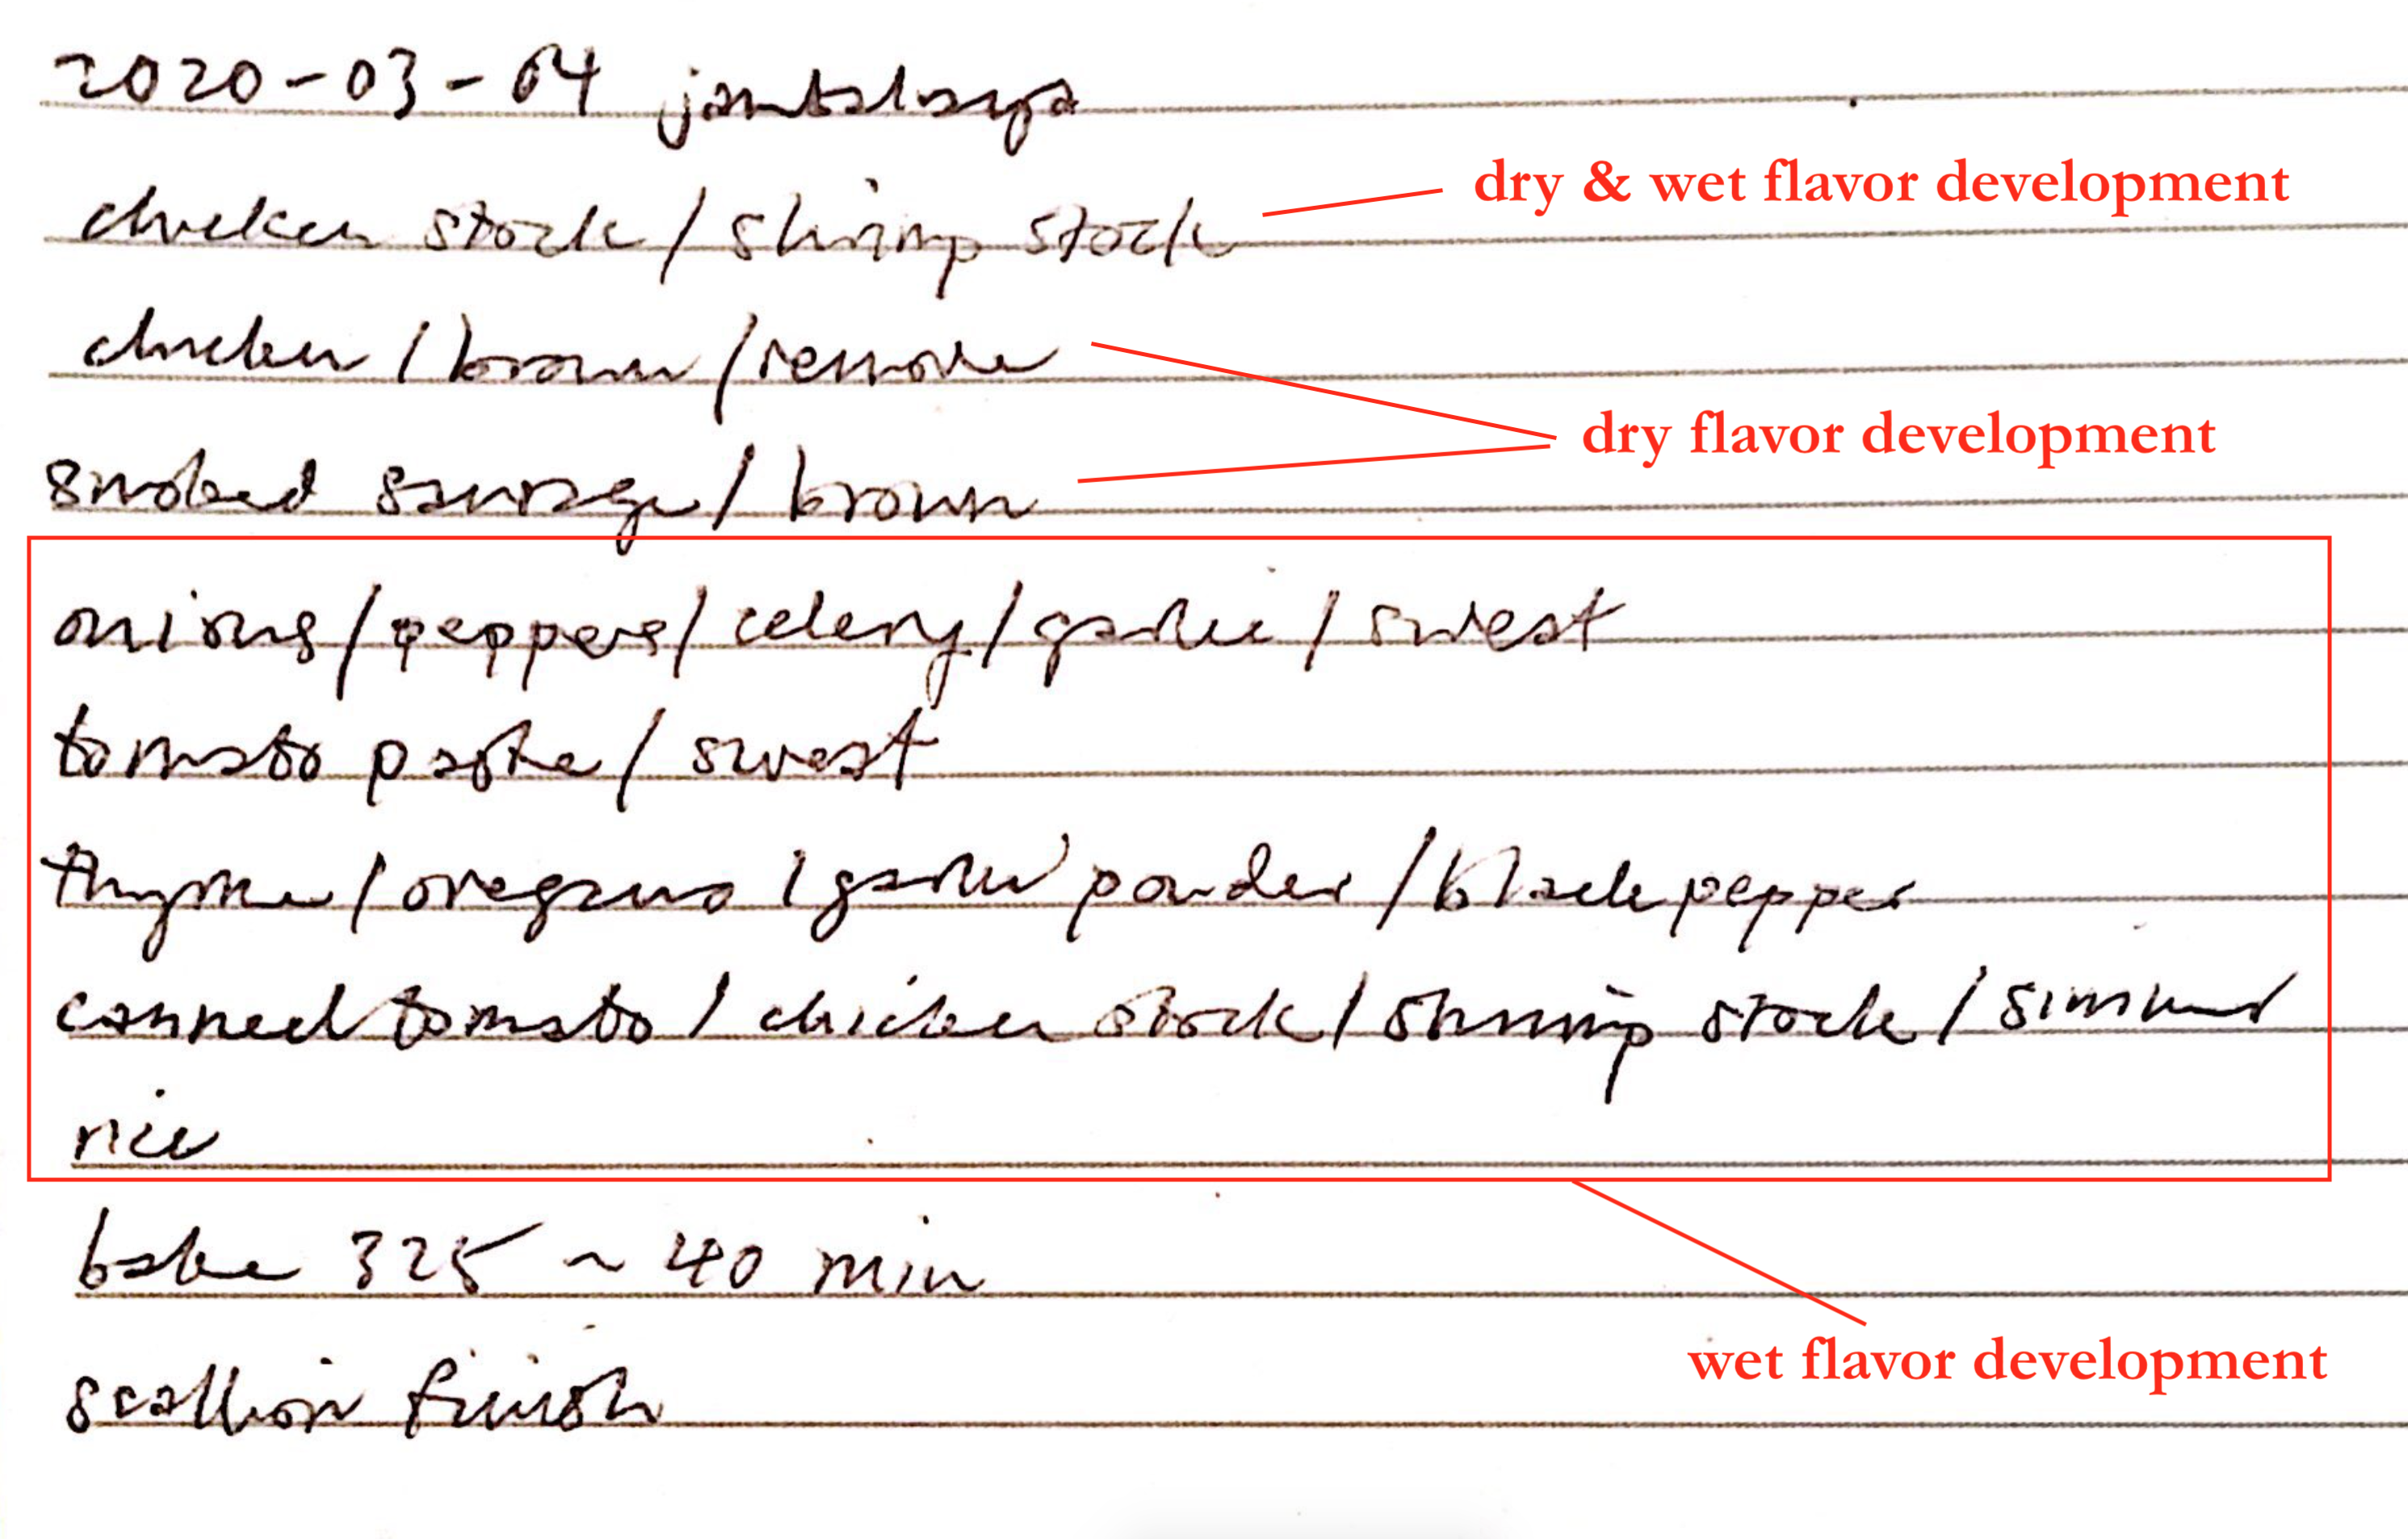 2020-03-04 jambalaya
dry & wet flavor development
chicken stock / shrimp stock
chicken / brown / remove
dry flavor development
smoked sausage / brown
onions / peppers / celery / garlic / sweat
tomato paste / sweat
thyme / oregano / garlic powder / black pepper
canned tomato / chicken stock / shrimp stock / simmer
rice
bake 325 ~ 40 min
wet flavor development
scallion finish